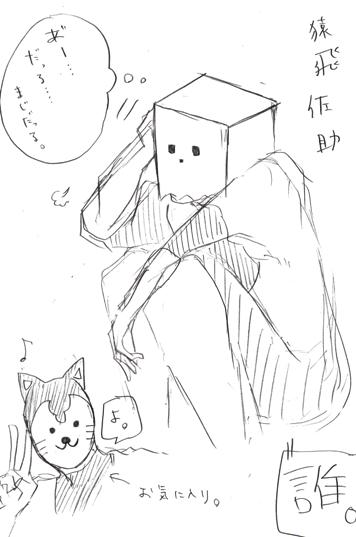 猿飛佐助
あ゛ー…
だっる……
まじだっる。
よ。
お気に入り。
誰。